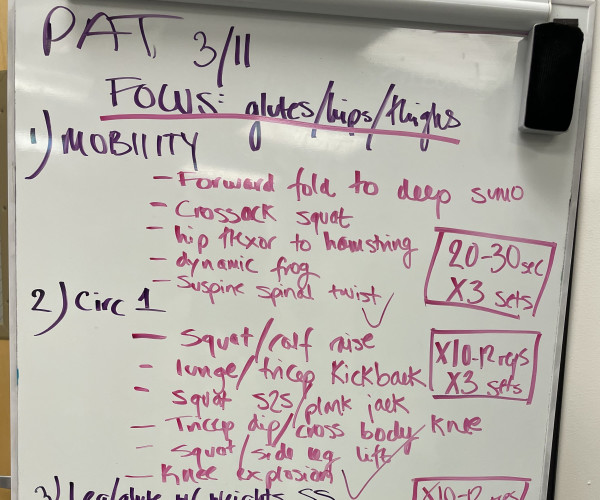 PAT 3/11
FOCUS: glutes/hips/thighs
1) MOBILITY
- Forward fold to deep sumo
- Crossack squat
- hip flexor to hamstring
- dynamic frog
- Suspine spinal twist
20-30sec
X3 sets
2) Circ 1
- Squat/calf raise
- lunge/tricep Kickback
- Squat S2S/plank jack
- Tricep dip/cross body Knee
- Squat/side leg lift
- Knee explosion
X10-12 reps
X3 sets
3) Leg/glute w/ weights SS
X10-12 reps